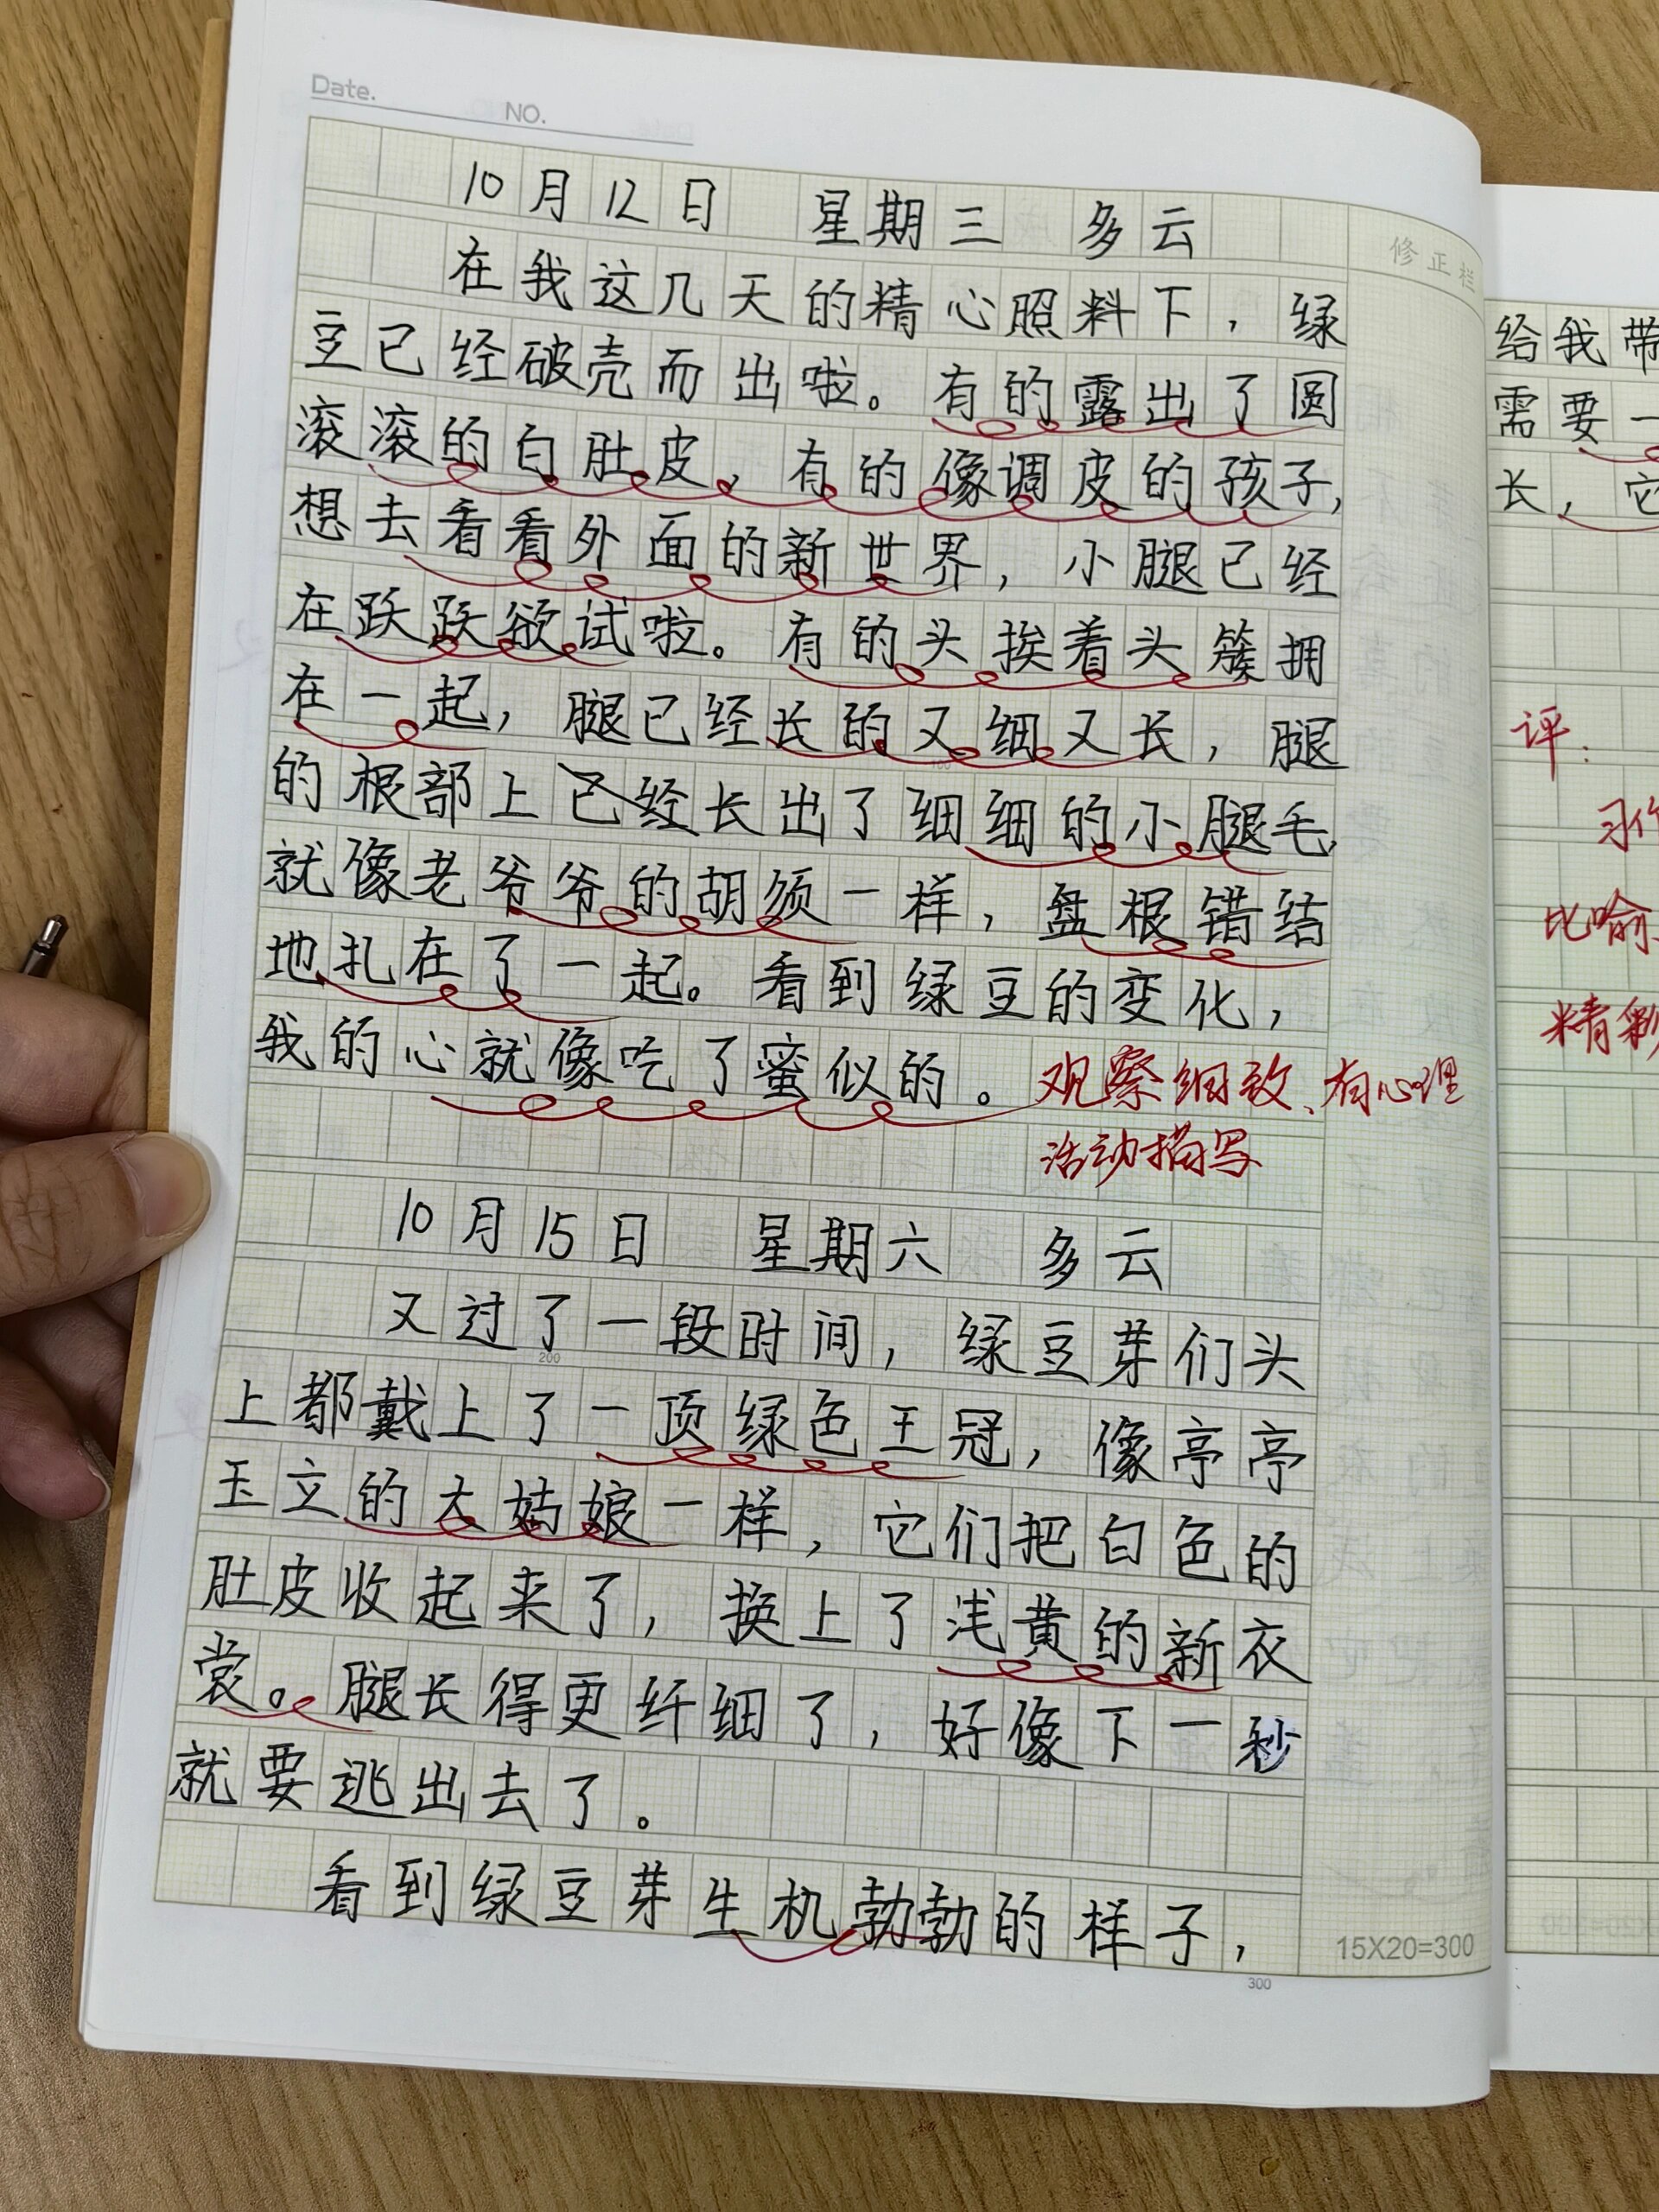 Date.
NO.
10月12日 星期三 多云
修正栏
在我这几天的精心照料下，绿
豆已经破壳而出啦。有的露出了圆
滚滚的白肚皮，有的像调皮的孩子，
想去看看外面的新世界，小腿已经
在跃跃欲试啦。有的头挨着头簇拥
在一起，腿已经长的又细又长，腿
的根部上已经长出了细细的小腿毛，
就像老爷爷的胡须一样，盘根错结
地扎在了一起。看到绿豆的变化，
我的心就像吃了蜜似的。
观察细致、有心理
活动描写
10月15日 星期六 多云
又过了一段时间，绿豆芽们头
200
上都戴上了一顶绿色王冠，像亭亭
玉立的大姑娘一样，它们把白色的
肚皮收起来了，换上了浅黄的新衣
裳。腿长得更纤细了，好像下一秒
就要逃出去了。
看到绿豆芽生机勃勃的样子，
15X20=300
300
给我带
需要一
长，它
评：
习作
比喻
精彩